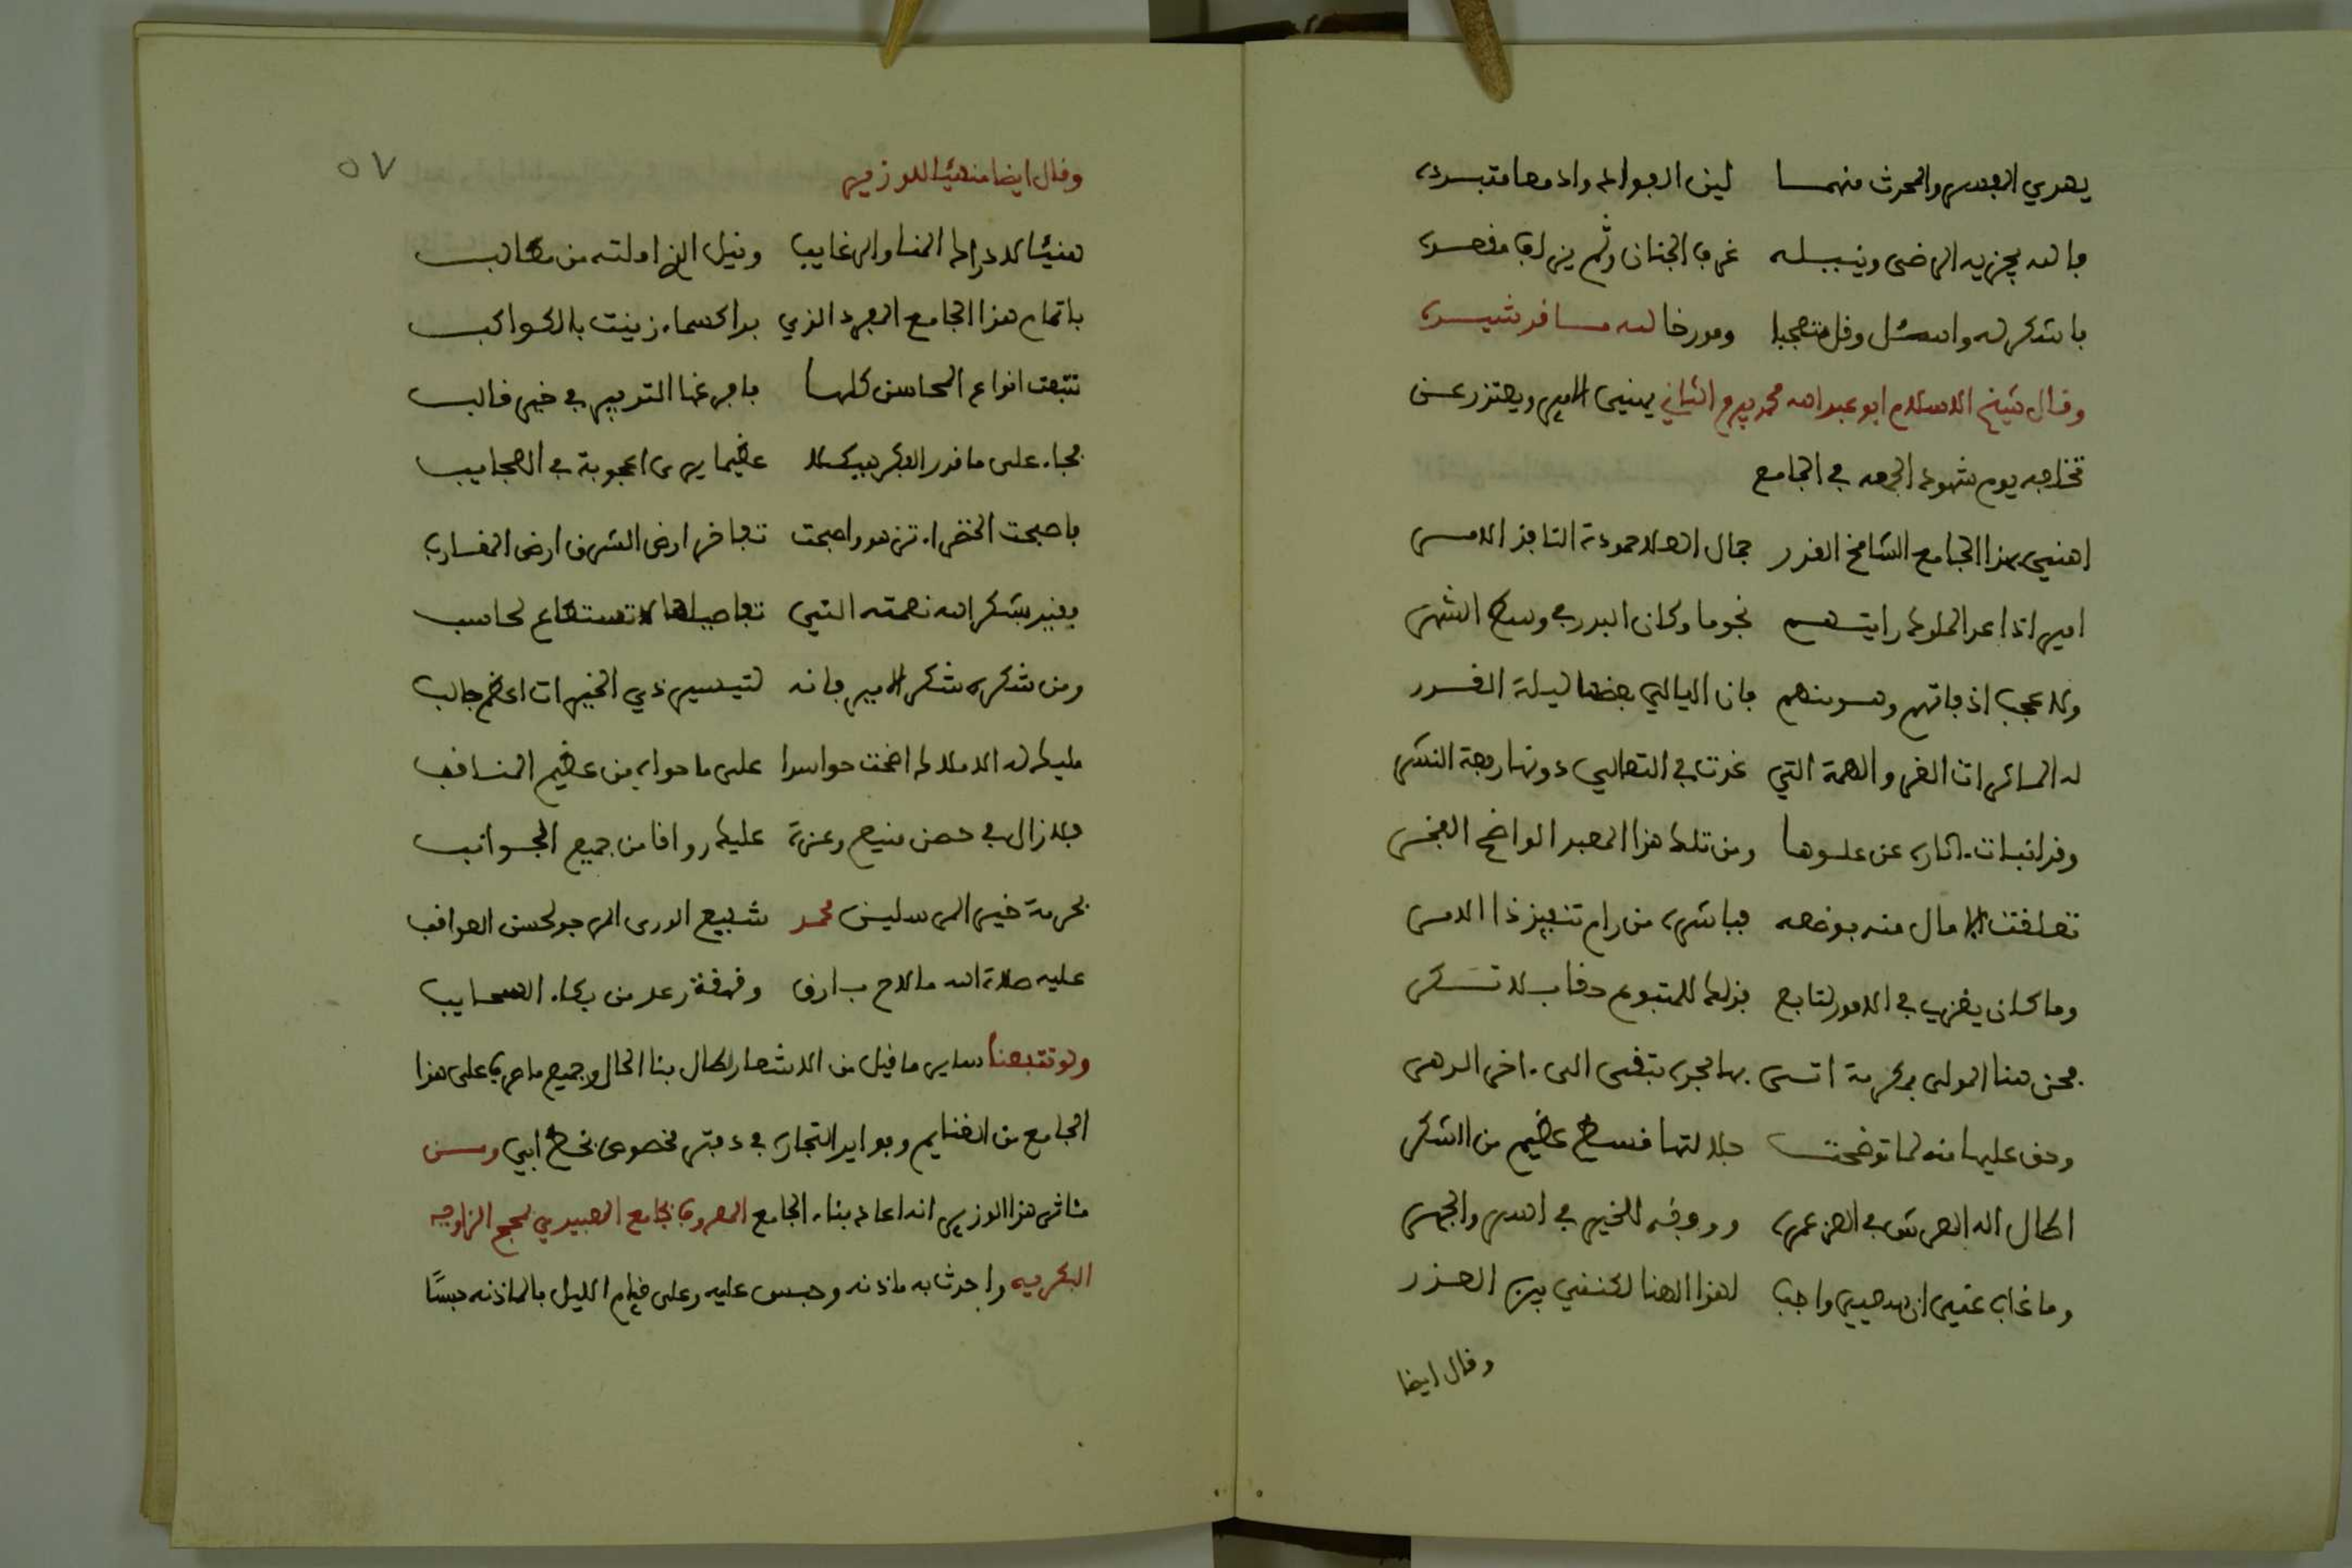 يهدي البصير والمحرث منهما ليث الجواد وادمعا متبدده
فالله يجزيه الرضى وينيله غرف الجنان وثم يزلف مقصده
فاشكر له واسئل وقل متعجبا ومورخا لله مسافر شيده
وقال شيخ الاسلام ابو عبد الله محمد بيرم الثاني يهني الامير ويعتذر عن
تخلفه يوم شهود الجمعه في الجامع
اهني بهذا الجامع الشامخ القدر جمال العلا حمودة النافذ الامر
امير اذا عد الملوك رايتهم نجوما وكان البدر في وسط الشهر
ولا عجب اذ فاتهم وهو منهم فان اليالي بعضها ليلة القدر
له الماثرات الغر والهمة التي غدت في التعالي دونها رفعة النسر
وقد انبات اثاره عن علوها ومن تلك هذا المعبد الواضح الفخر
تعلقت الامال منه بوضعه فباشره من رام تنفيذ ذا الامر
وما كان يعزى في الامور لتابع فذلك للمتبوع حقا بلا نكر
فحق هنا المولى بمكرمة اتى بها اجره تبقى الى اخر الدهر
وحق عليها منه لما توضحت جلالتها قسط عظيم من الشكر
اطال اله العرش في العز عمره ووفقه للخير في السر والجهر
وما غاب عني ان سعيي واجبا لهذا الهنا لكنني بين العذر
وقال ايضا
٥٧
وقال ايضا مهنيئا للوزير
هنيئا لادراك المنا والرغايب ونيل الذي املته من مطالب
باتمام هذا الجامع المفرد الذي بدا كسماء زينت بالكواكب
تتبعت انواع المحاسن كلها فافرغها التدبير في خير قالب
فجاء على ما قدر الفكر هيكلا عظيما يرى اعجوبة في العجايب
فاصبحت الخضراء تزهو واصبحت تفاخر ارض الشرق ارض المغارب
فقيد بشكر الله نعمته التي تفاصيلها لا تستطاع لحاسب
ومن شكره شكر الامير فانه لتيسير ذي الخيرات اعظم جالب
مليك له الاملاك اضحت حواسدا على ما حواه من عظيم المناقب
فلا زال في حصن منيع وعزة عليك رواقا من جميع الجوانب
بحرمة خير المرسلين محمد شفيع الورى المرجو لحسن العواقب
عليه صلاة الله ما لاح بارق وقهقة رعد من بكاء السحايب
ولو تتبعنا ساير ما قيل من الاشعار لطال بنا الحال وجميع ما صرف على هذا
الجامع من الغنايم وفوايد التجارة في دفتر مخصوص بخط ابي ومن
مئاثر هذا الوزير انه اعاد بناء الجامع المعروف بجامع الصبيدري لحجج الزاوية
البكريه واحدث به ماذنه وحبس عليه وعلى قيام الليل بالماذنه حبسًا